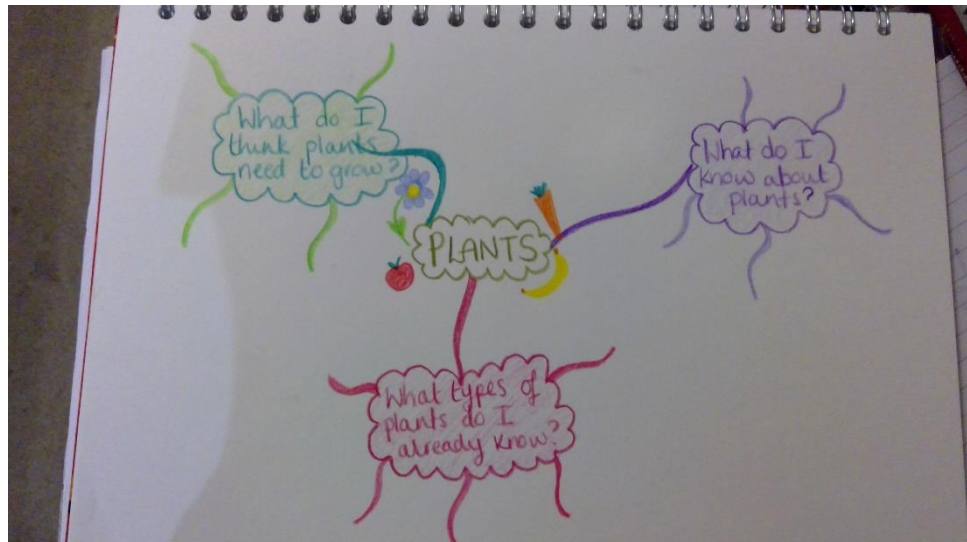 What do I
think plants
need to grow?
What do I
know about
plants?
PLANTS
What types of
plants do I
already know?